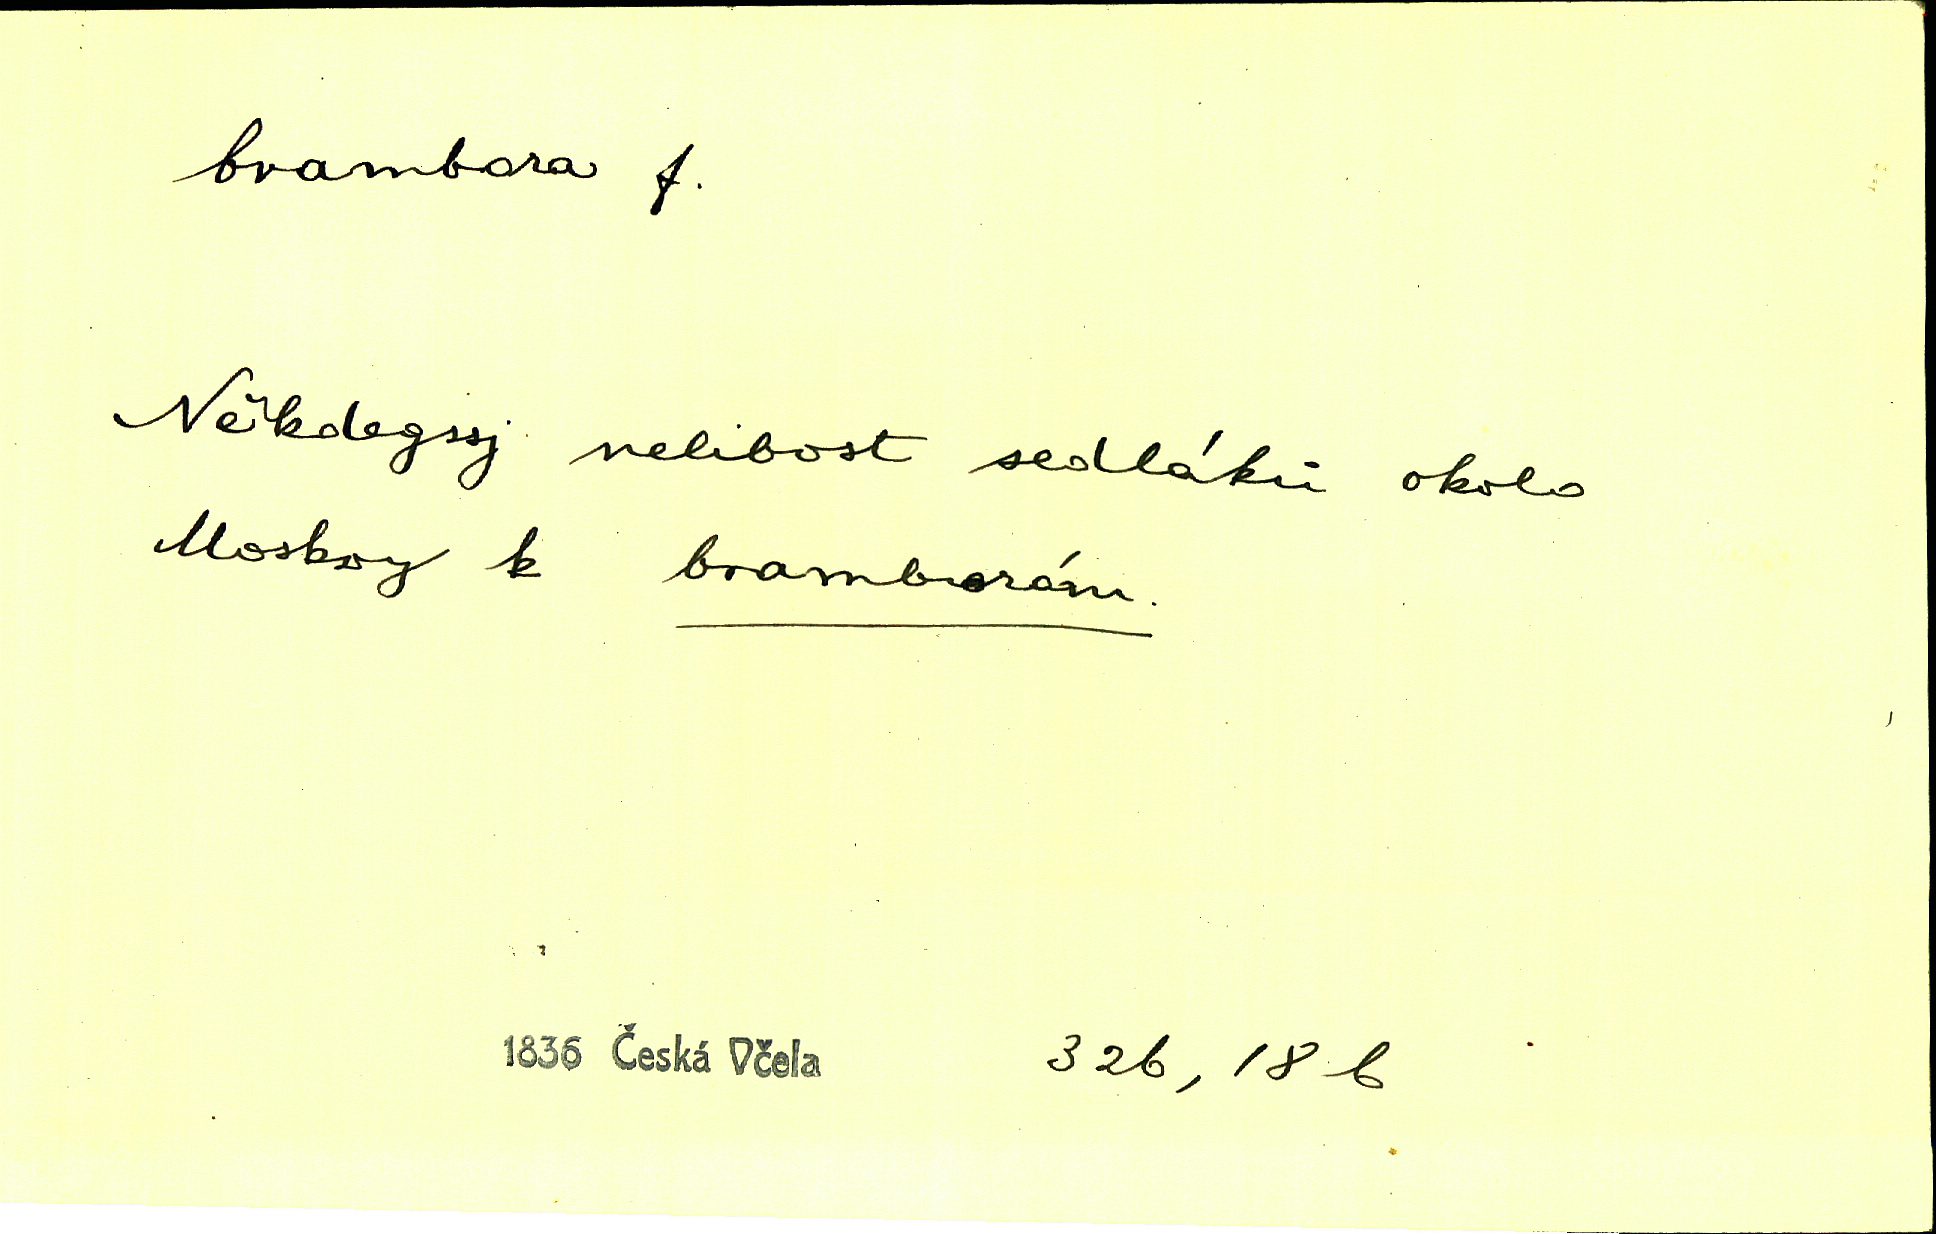 brambora f.
Někdegssj nelibost sedláků okolo
Moskvy k bramborám.
1836 Česká Včela 326, 18 b